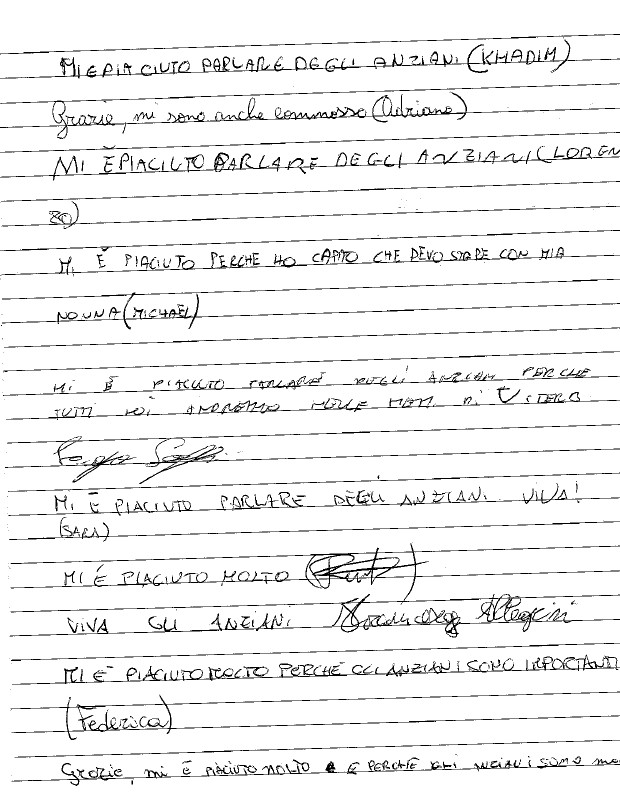 MI È PIACIUTO PARLARE DEGLI ANZIANI (KHADIM)
Grazie, mi sono anche commosso (Adriano)
MI È PIACIUTO PARLARE DEGLI ANZIANI (LOREN
ZO)
MI È PIACIUTO PERCHE HO CAPITO CHE DEVO STARE CON MIA
NONNA (MICHAEL)
MI È PIACIUTO PARLARE DEGLI ANZIANI PERCHE
TUTTI NOI ANDREMO
MI È PIACIUTO PARLARE DEGLI ANZIANI VIVA!
(SARA)
MI È PIACIUTO MOLTO
VIVA GLI ANZIANI Allegrini
MI È PIACIUTO MOLTO PERCHE GLI ANZIANI SONO IMPORTANTI
(Federica)
Grazie, mi È PIACIUTO MOLTO E PERCHÈ GLI ANZIANI SONO